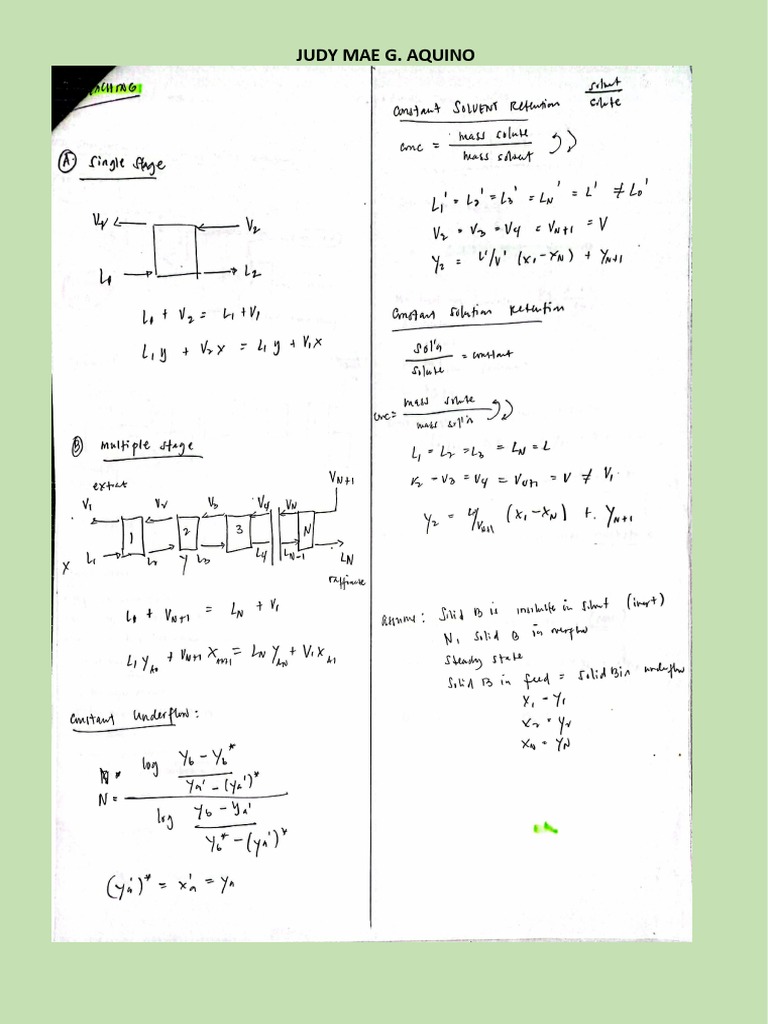 JUDY MAE G. AQUINO
ACHING
A. Single Stage
V1
V2
L0
L2
L0 + V2 = L1 + V1
L1 y + V2 x = L1 y + V1 x
B Multiple Stage
extract
V1 V2 V3 V4 VN VN+1
1 2 3 N
X L1 L2 Y L3 L4 LN-1 LN
raffinate
L0 + VN+1 = LN + V1
L1 yA0 + VN+1 XAN+1 = LN YAN + V1 XA1
Constant Underflow:
N = log (Yb - Yb*) / (Ya' - (Ya')*)
log (Yb - Ya') / (Yb* - (Ya')*)
(Ya')* = Xa' = Ya
Constant SOLVENT Retention
solvent
solute
conc = mass solute
mass solvent
L1' = L2' = L3' = LN' = L' ≠ L0'
V2 = V3 = V4 = VN+1 = V
Y2 = L'/V' (X1 - XN) + YN+1
Constant Solution Retention
Sol'n
Solute = constant
conc = mass solute
mass sol'n
L1 = L2 = L3 = LN = L
V2 - V3 = V4 = VN+1 = V ≠ V1
Y2 = L/VN+1 (X1 - XN) + YN+1
Assume: Solid B is insoluble in solvent (inert)
No solid B in overflow
Steady state
Solid B in feed = Solid B in underflow
X1 - Y1
X2 = Y2
XN = YN